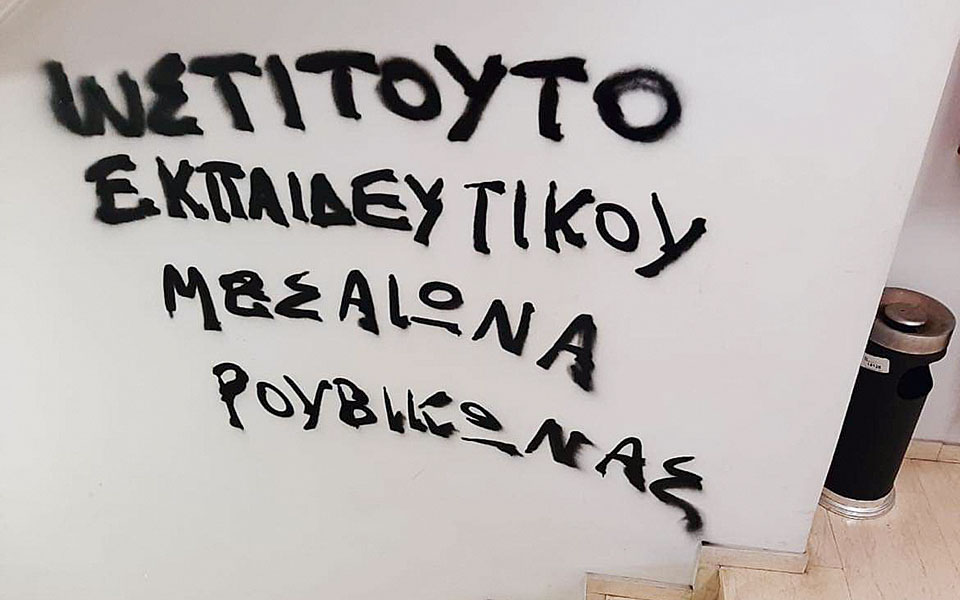 ΙΝΣΤΙΤΟΥΤΟ
ΕΚΠΑΙΔΕΥΤΙΚΟΥ
ΜΕΣΑΙΩΝΑ
ΡΟΥΒΙΚΩΝΑΣ